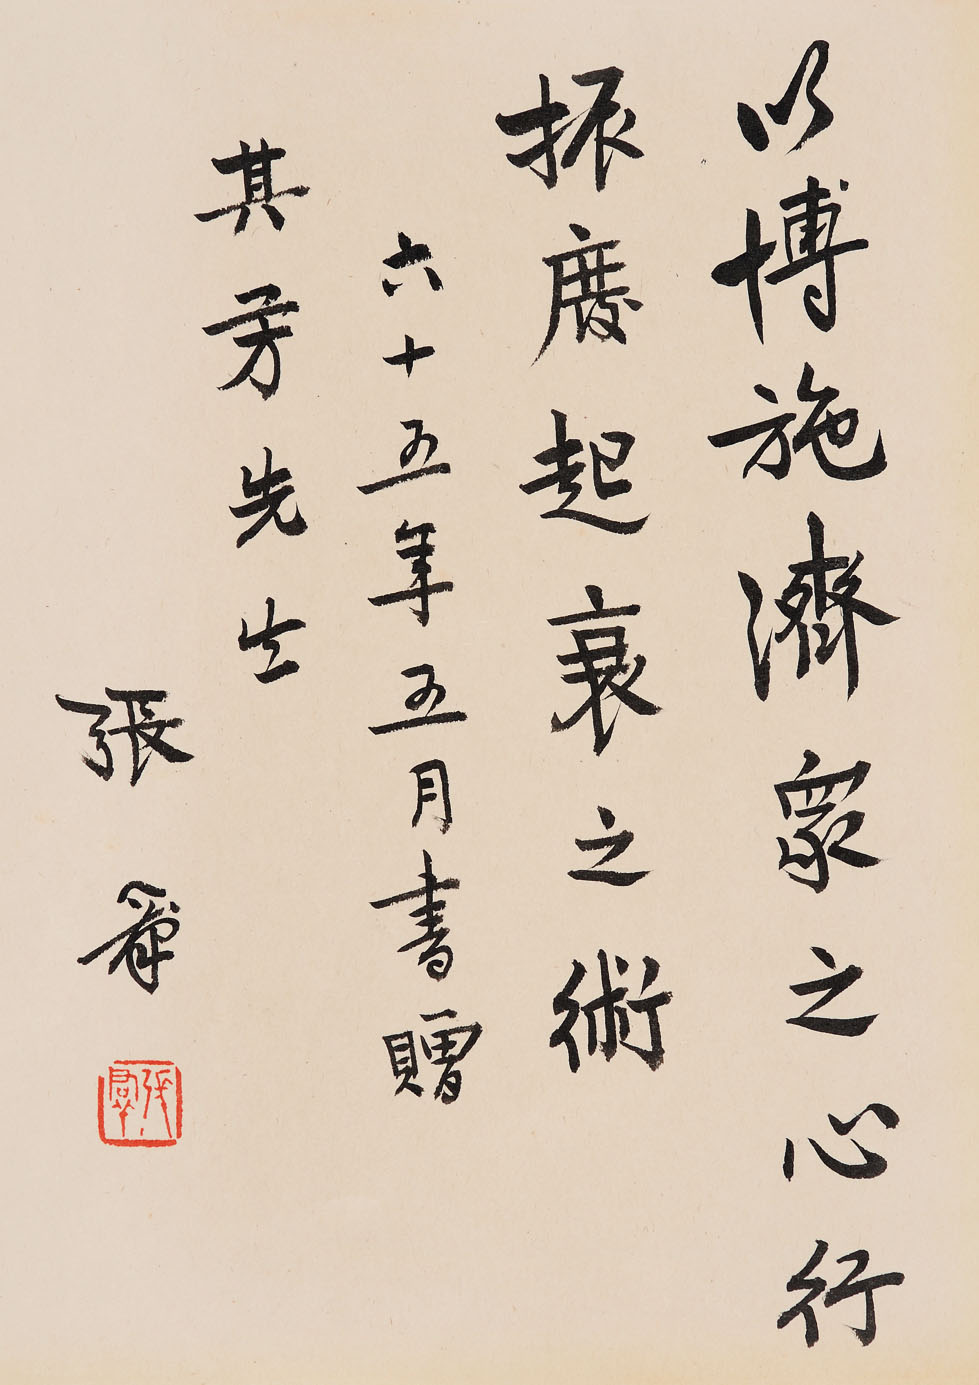 以博施濟眾之心行
振廢起衰之術
六十五年五月書贈
其芳先生
張羣
張羣